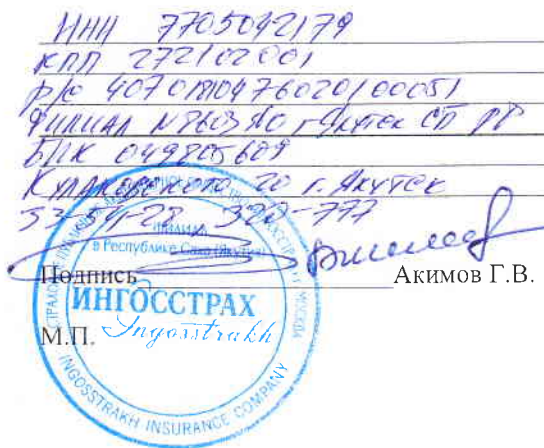 ИНН 7705042179
КПП 272102001
р/с 40701810476020100051
Филиал №8603 АО г.Якутск СП РФ
БИК 049805609
Кулаковского 20 г. Якутск
33-54-28 320-777
ФИЛИАЛ
в Республике Саха (Якутия)
Подпись Акимов Г.В.
ИНГОССТРАХ
Ingosstrakh
М.П.
INGOSSTRAKH INSURANCE COMPANY